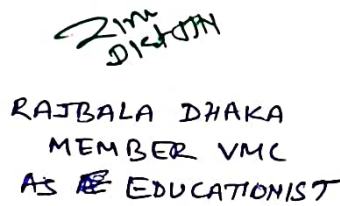 DISTT JJN
RAJBALA DHAKA
MEMBER VMC
AS EDUCATIONIST